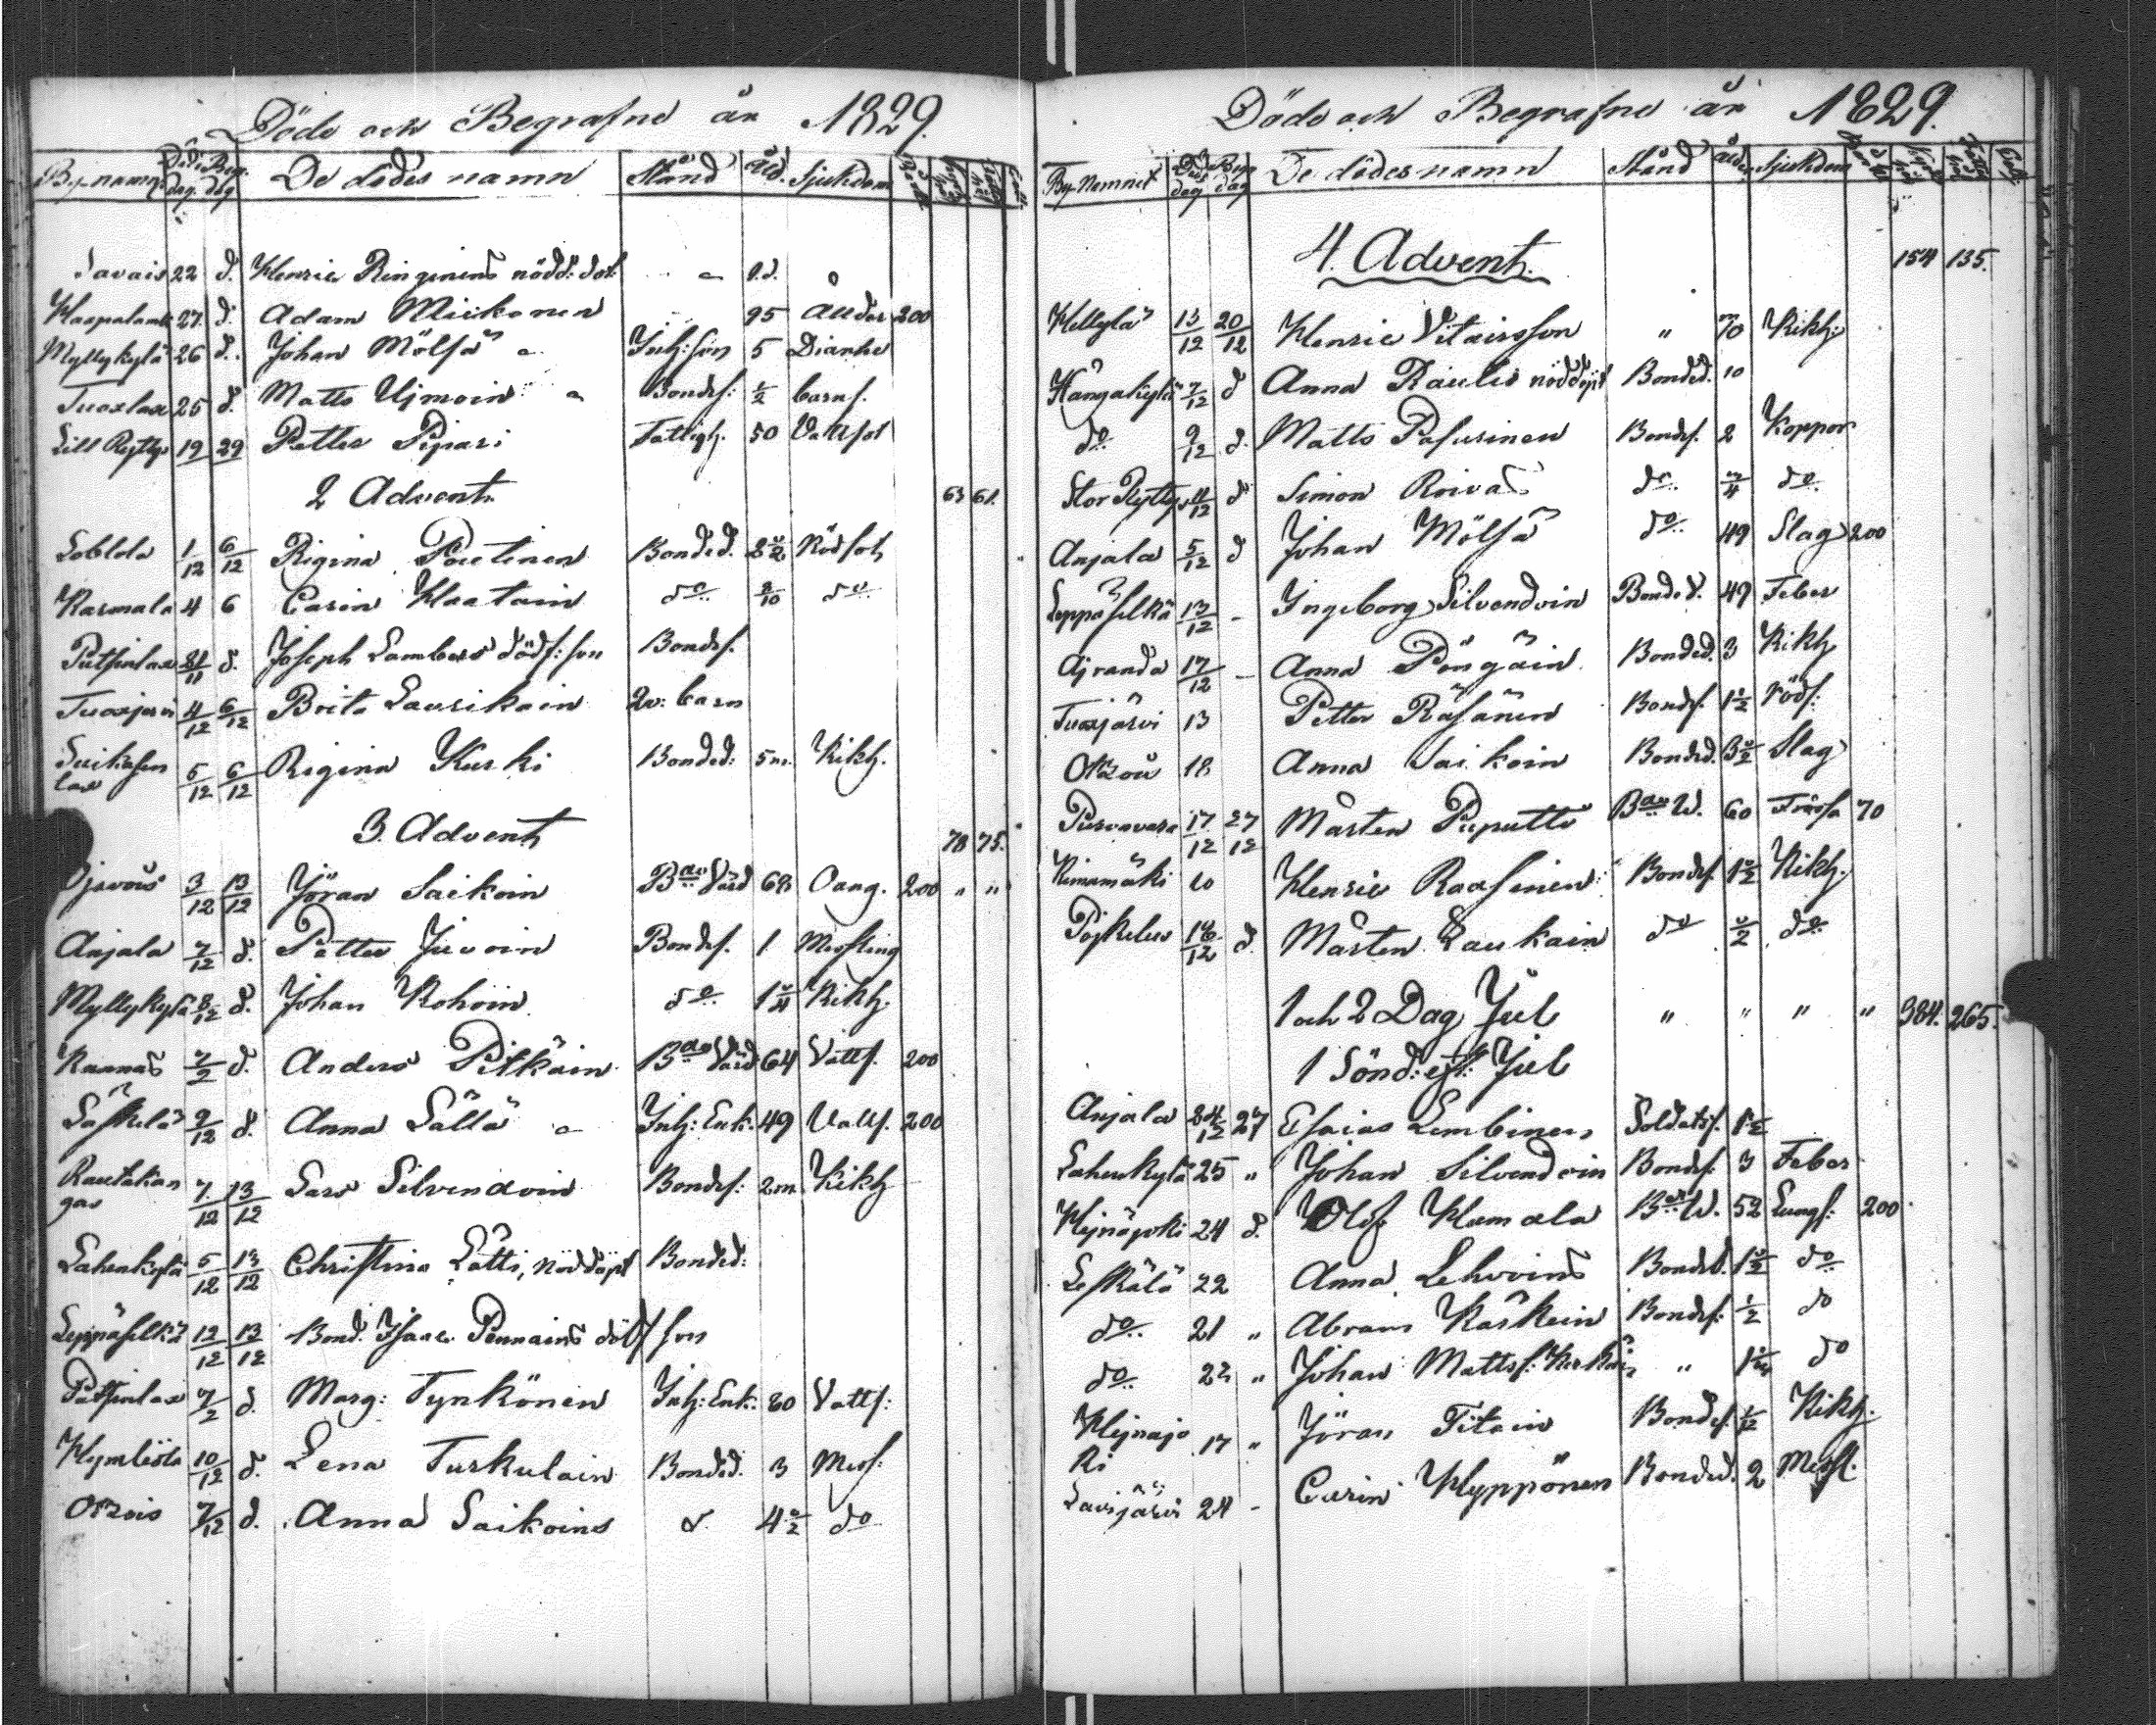 Döde och Begrafne år 1829.
By-namn Död dag Begr. dag De dödes namn Stånd Åld. Sjukdom
Savais 22 d. Henric Ringinens nödd: dot. 1.d.
27. d. Adam Miikonen 95 Ålldr 200
Myllykylä 26 d. Johan Mölsä Inh: son 5 Diarrhe
Tuoxlax 25 d. Matts Ujmoin Bondes: 1/2 barns.
Lill Rytty 19 29 Petter Pipari Fattigh. 50 Vattsot
2 Advent. 63 61.
Loblola 1/12 6/12 Rigina Poutinen Bonded. 2 1/2 Rödsot
Karmala 4 6 Carin Haatain do 2/10 do
Putsinlax d. Joseph Lambers dödf: son Bondes.
Tuoxjärvi 4/12 6/12 Brita Laurikain 2v: barn
Suikasen lax 5/12 6/12 Rigina Kurki Bonded: 5m. Kikh.
3. Advent 78 75.
Ojavois 3/12 13/12 Jöran Saikoin Bde Värd 68 Oang. 200 " "
Anjala 7/12 d. Petter Juvoin Bondes. 1 Messling
Myllykylä 8/12 d. Johan Kohoin do 1 1/4 Kikh.
Kannas 7/2 d. Anders Pitkäin Bde Värd 64 Vatts. 200
Läskelä 9/12 d. Anna Lällä Inh: Enk. 49 Vatts. 200
Rautakan gas 7/12 13/12 Lars Silvendoin Bondes: 2m. Kikh
Lahenkylä 5/12 13/12 Christina Lätti, nöddöpt Bonded:
Leppäselkä 12/12 13/12 Bond. Isaac Pennains döds son
Putsinlax 7/2 d. Marg: Tynkönen Inh: Enk. 80 Vatts:
Hymlösta 10/12 d. Lena Turkulain Bonded. 3 Mess:
Otsois 7/12 d. Anna Saikoins d. 4 1/2 do
Döde och Begrafne år 1829.
By-Namnet Död dag Begr dag De dödes namn Stånd Ålder Sjukdom
4. Advent. 154 135.
Hellylä 13/12 20/12 Henric Vitairsson " 70 Kikh:
Hångakylä 7/12 d Anna Raulis nöddöpt Bonded. 10
do 9/12 d. Matts Pasurinen Bondes. 2 Koppor
Stor Rytty 11/12 d Simon Roivas do 3/4 do
Anjala 5/12 d Johan Mölsä do 49 Slag 200
Leppäselkä 13/12 - Ingeborg Silvendoin Bonded. 49 Feber
Ajranda 17/12 - Anna Pöngäin Bonded. 3 Kikh
Tuoxjärvi 13 Petter Räsänen Bondes. 1 1/2 röds:
Otzois 18 Anna Saikoin Bonded. 3 1/2 Slag
Pursavara 17/12 27/12 Mårten Puputti Bde W. 60 Frossa 70
Rimamäki 20 Henric Raasinen Bondes. 1 1/2 Kikh.
Pojkelus 16/12 d. Mårten Laukain do 1/2 do
1 och 2 Dag Jul " " " " 384. 265.
1 Sönd: eft: Jul
Anjala 24/12 27 Esaias Lembinen Soldats. 1 1/2
Lahenkylä 25 " Johan Silvendoin Bondes: 3 Feber
Hejnäjoki 24 d. Olof Humala Bde W. 52 Lungs: 200
Leskälä 22 Anna Lehvoins Bonded. 1 1/2 do
do 21 " Abram Käskein Bondes: 1/2 do
do 22 " Johan Mattss: " do
Hejnajo ki 17 " Jöran Titain Bondes. 1/12 Kikh.
Lavijärvi 24 - Carin Hyppönen Bonded. 2 Messl.